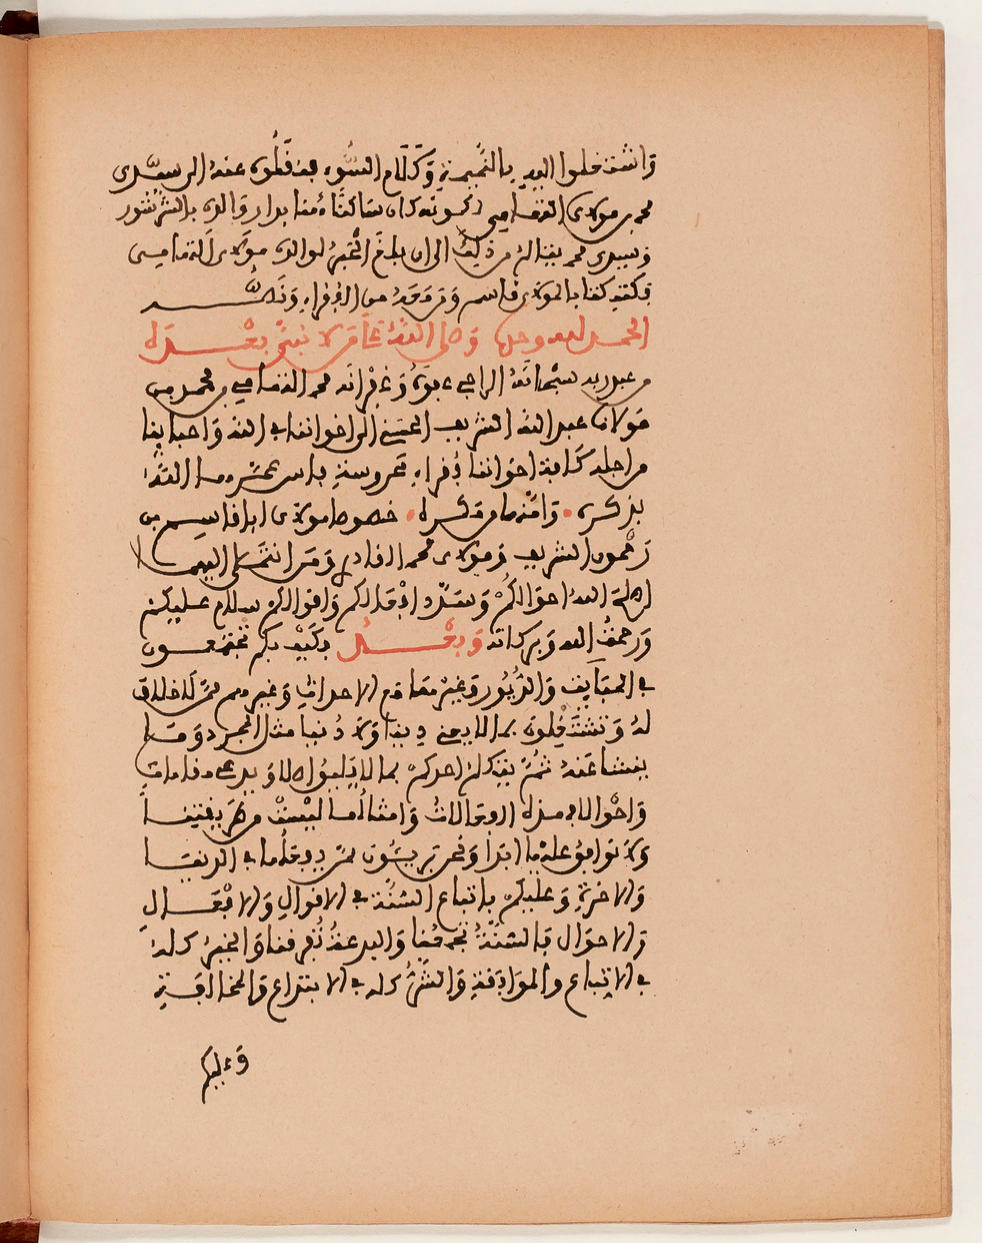 واشتغلوا اليه بالنميمة وكلام السوء فنقلوه عنه الى سيدي
محمد بن مولاي التهامي لكونه كان ساكنا هنا بدار والده بالشرشور
وسيدي محمد الى ان بلغ الخبر لوالده مولاي التهامي
فكتب كتابا لمولاي قاسم ومن معه من الفقراء ونصه
الحمد لله وحده وصلى الله على من لا نبي بعده
من عبد ربه سبحانه الراجي عفوه وغفرانه محمد التهامي بن محمد بن
مولانا عبد الله الشريف الحسني الى اخواننا في الله واحبابنا
من اجله كافة اخواننا فقراء محروسة فاس عمرها الله
بذكره وامنها من مكره خصوصا مولاي ابا قاسم بن
رحمون الشريف ومولاي محمد القادري ومن انتمى اليهما
اصلح الله احوالكم وسدد افعالكم واقوالكم سلام عليكم
ورحمت الله وبركاته وبعد فكيف بكم تجتمعون
في المباييت والدور وغيرهما مع الاحداث وغيرهم ممن لا خلاق
له وتشتغلون بما لا يعني دينا ولا دنيا مثل المجرد وما
ينشا عنه ثم يتكلم احدكم بما لا يليق اصلا ويدعي مقامات
واحوالا هذه الافعالات وامثالها ليست من طريقتنا
ولا نوافق عليها ابدا ونحن بريئون ممن يفعلها في الدنيا
والاخرة وعليكم باتباع السنة في الاقوال والافعال
والاحوال فالسنة تجمعنا والبدعة تفرقنا والخير كله
في الاتباع والموافقة والشر كله في الابتداع والمخالفة
وعليكم